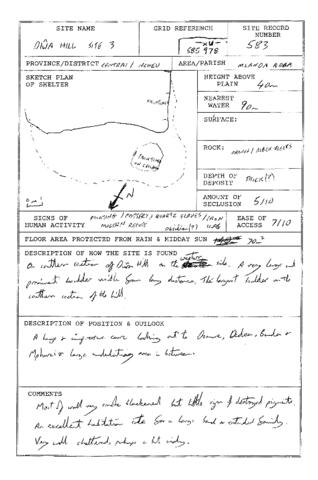 SITE NAME
GRID REFERENCE
SITE RECORD
NUMBER
DIWA HILL SITE 3
XU
585 978
583
PROVINCE/DISTRICT CENTRAL /
AREA/PARISH
SKETCH PLAN
OF SHELTER
HEIGHT ABOVE
PLAIN 40m
NEAREST
WATER 90m
SURFACE:
ROCK:
PAINTINGS
PAINTINGS
ON CEILING
N
DEPTH OF
DEPOSIT THICK(?)
0 m
AMOUNT OF
SECLUSION 5/10
SIGNS OF
HUMAN ACTIVITY
PAINTING / POTTERY / QUARTZ FLAKES / IRON
MODERN obsidian(?)
EASE OF
ACCESS 7/10
FLOOR AREA PROTECTED FROM RAIN & MIDDAY SUN 70m²
DESCRIPTION OF HOW THE SITE IS FOUND
On southern section of Diwa Hill on the western side. A very large and
prominent boulder visible from long distance. The largest boulder on the
southern section of the hill.
DESCRIPTION OF POSITION & OUTLOOK
A large & impressive cave looking out to
& large undulating area in between.
COMMENTS
Most of wall very smoke blackened but little sign of destroyed pigments
An excellent habitation site for a large band or extended family
Very well sheltered, perhaps a bit windy.